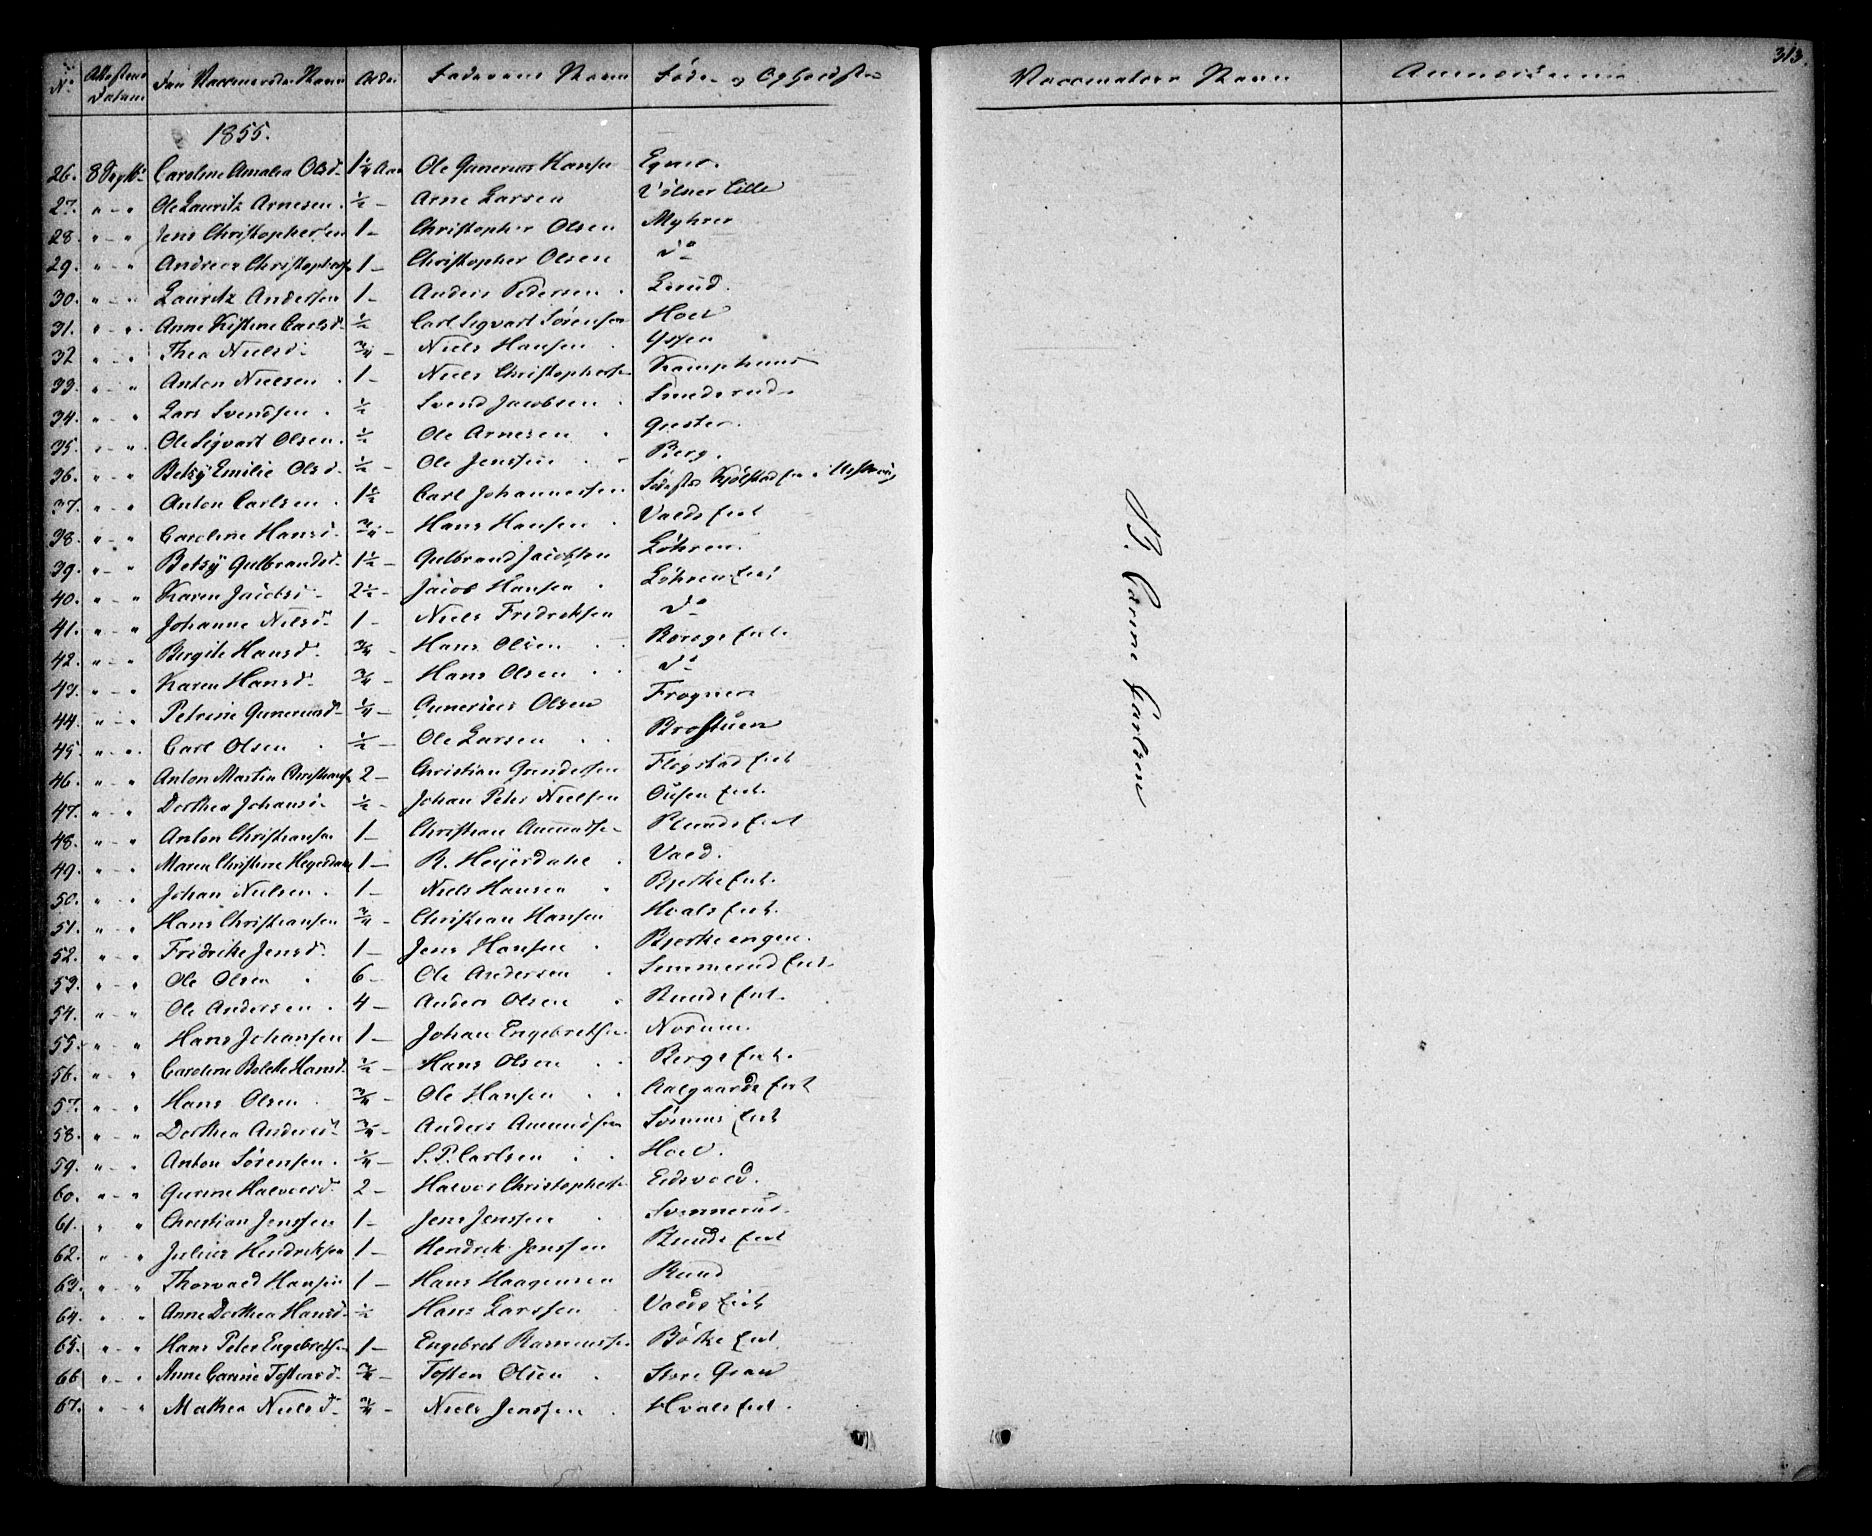 313.
No Attestens Datum Den Vaccineredes Navn Alder Faderens Navn Føde- og Opholdsted Vaccinateurs Navn
1855.
26. 8 Septbr Caroline Amalia Olsd. 1¼ Aar Ole Gunerius Hansen
27. " - " Ole Lauritz Arnesen. ½ - Arne Larsen Lille
28. " - " Jens Christophersen 1 - Christopher Olsen Myhrer
29. " - " Andrea Christophersd 1 - Christopher Olsen do
30. " - " Lauritz Andersen 1 - Anders Pedersen
31. " - " Anne Kistine Carlsd. ½ Carl Sigvart Sörensen Hoel
32 " - " Thea Nielsd. ¾ - Niels Hansen
33. " - " Anton Nielsen. 1 - Niels Christophersen Kamphuus
34. " - " Lars Svendsen. ½ Svend Jacobsen
35. " - " Ole Sigvart Olsen. ½ Ole Arnesen
36. " - " Betsy Emilie Olsd. ½ - Ole Jenssen Berg.
37. " - " Anton Carlsen. 1½ Carl Johannessen
38. " - " Caroline Hansd. ¾ - Hans Hansen Valds Eiet
39. " - " Betsy Gulbrandsd. 1½ - Gulbrand Jacobsen Löhren.
40. " - " Karen Jacobsd. 2½ - Jacob Hansen Löhren Eiet
41. " - " Johanne Nilsd. 1 - Niels Fredriksen do
42. " - " Bergite Hansd. ¾ - Hans Olsen Eiet.
43. " - " Karen Hansd. ¾ - Hans Olsen do
44. " - " Petrine Guneriusd. ¼ - Gunerius Olsen Frogner
45. " - " Carl Olsen ½ - Ole Larsen Brostuen
46. " - " Anton Martin Christiansen 2 - Christian Gundersen Flogstad Eiet
47. " - " Dorthea Johansd. ½ - Johan Peter Nielsen Ousen Eiet.
48. " - " Anton Christiansen 1 - Christian Amundsen Ruuds Eiet
49. " - " Maren Christine Heyerdahl 1 - R. Heijerdahl Vald.
50. " - " Johan Nielsen. 1 - Niels Hansen Bjerke Eiet.
51. " - " Hans Christiansen ¾ - Christian Hansen Hvals Eiet.
52. " - " Fredrikke Jensd. 1 - Jens Hansen Bjerke engen.
53. " - " Ole Olsen 6 - Ole Andersen Semmerud Eiet
54. " - " Ole Andersen. 4 - Anders Olsen Ruuds Eiet.
55. " - " Hans Johansen 1 - Johan Engebretsen. Norum.
56. " - " Caroline Bolette Hansd. ½ - Hans Olsen Bergs Eiet.
57. " - " Hans Olsen ¾ - Ole Hansen Aalgaards Eiet
58. " - " Dorthea Andersd. ¾ - Anders Amundsen Eiet
59. " - " Anton Sörensen. ¼ - S. P. Carlsen Hoel.
60. " - " Gurine Halvorsd. 2 - Halvor Christophersen Eidsvold.
61. " " Christian Jenssen 1 - Jens Jenssen
62. " - " Julius Hendriksen 1 - Hendrik Jenssen Ruuds Eiet
63. " - " Thorvald Hansen 1 - Hans Haagensen Ruud
64. " - " Anne Dorthea Hansd. ½ Hans Larssen Valds Eiet
65. " - " Hans Peter Engebretsen 1 - Engebret Rasmussen Eiet
66 " - " Anne Carine Tostensd. ¾ - Tosten Olsen Store Gran
67. " - " Mathea Nielsd. ¾ - Niels Jenssen Hvals Eiet.